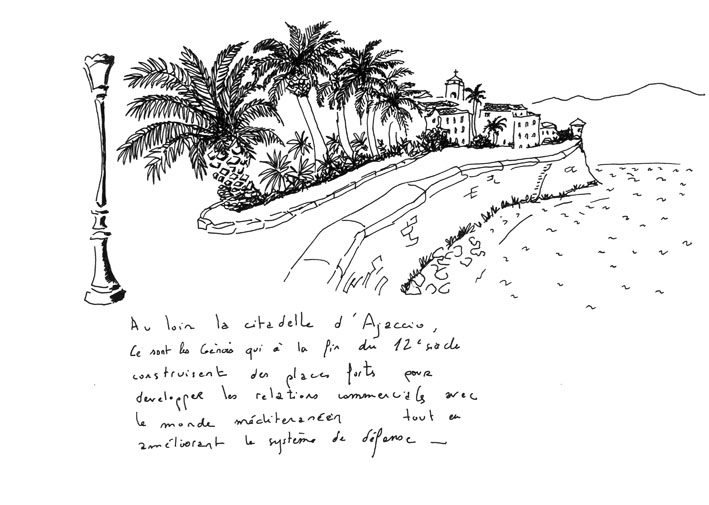 Au loin la citadelle d'Ajaccio,
Ce sont les Génois qui à la fin du 12e siècle
construisent des places forts pour
developper les relations commerciales avec
le monde méditeranéen tout en
améliorant le système de défense —